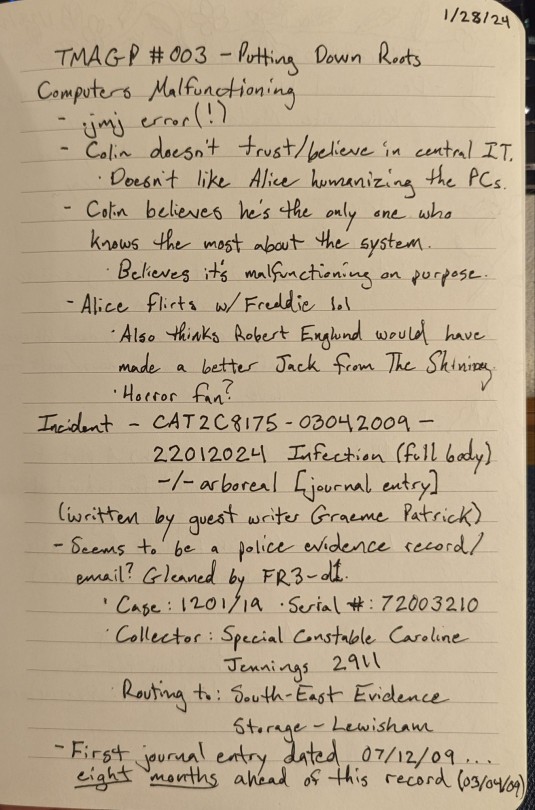 1/28/24
TMAGP #003 - Putting Down Roots
Computers Malfunctioning
- .jmj error(!)
- Colin doesn't trust/believe in central IT.
· Doesn't like Alice humanizing the PCs.
- Colin believes he's the only one who
knows the most about the system.
· Believes it's malfunctioning on purpose.
- Alice flirts w/ Freddie lol
· Also thinks Robert Englund would have
made a better Jack from The Shining.
· Horror fan?
Incident - CAT2C8175-03042009-
22012024 Infection (full body)
-/- arboreal [journal entry]
(written by guest writer Graeme Patrick)
- Seems to be a police evidence record/
email? Gleaned by FR3-d1.
· Case: 1201/19 · Serial #: 72003210
· Collector: Special Constable Caroline
Jennings 2911
· Routing to: South-East Evidence
Storage - Lewisham
- First journal entry dated 07/12/09...
eight months ahead of this record (03/04/09)